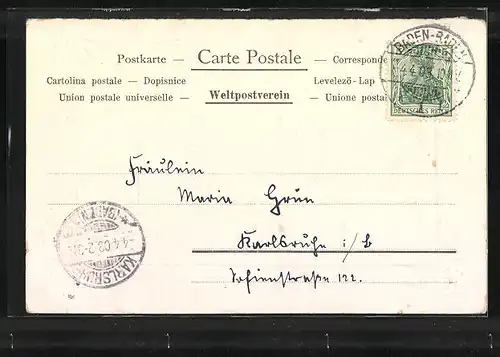 Postkarte — Carte Postale — Corresponde
Cartolina postale — Dopisnice Levelező-Lap
Union postale universelle — Weltpostverein — Unione postal
BADEN-BADEN
4.4.03
1
DEUTSCHES REICH
Fräulein
Maria Grün
Karlsruhe i/B
Sofienstraße 122.
KARLSRUHE
4.4.03.